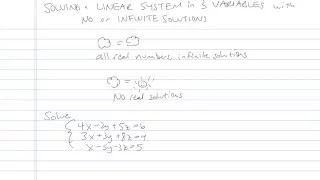 SOLVING a LINEAR SYSTEM in 3 VARIABLES with
NO or INFINITE SOLUTIONS
=
all real numbers infinite solutions
=
No real solutions
Solve
4x-2y+5z=6
3x+3y+8z=4
x-5y-3z=5